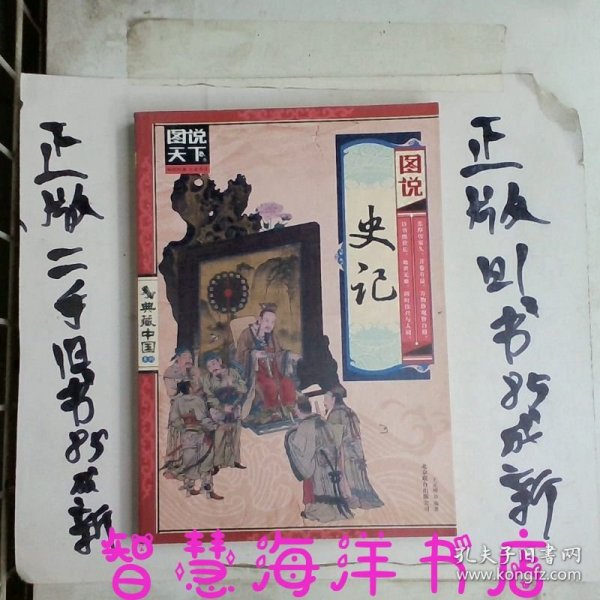 正版二手旧书85成新
图说
天下
典藏中国
图说
史记
北京联合出版公司
正版旧书85成新
智慧海洋书店
孔夫子旧书网
www.kongfz.com